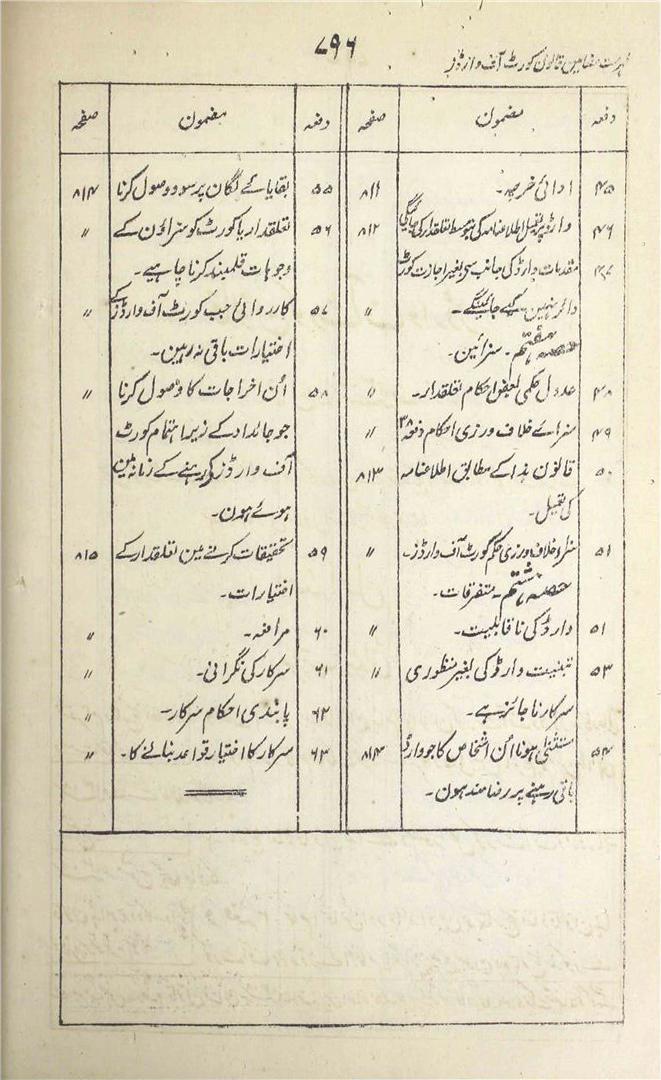 ۷۹۶
فہرست مضامین قانون کورٹ آف وارڈز
دفعہ مضمون صفحہ
۴۵ ادائی خرچہ۔ ۸۱۱
۴۶ وارڈ پر تعمیل اطلاعنامہ کی بتوسط تعلقدار کی جائیگی ۸۱۲
۴۷ مقدمات وارڈ کی جانب سے بغیر اجازت کورٹ
دائر نہیں کیے جائینگے۔ 〃
حصہ ہفتم۔ سزائین۔
۴۸ عدول حکمی بعض احکام تعلقدار۔ 〃
۴۹ سزائے خلاف ورزی احکام دفعہ ۳۸ 〃
۵۰ قانون ہذا کے مطابق اطلاعنامہ ۸۱۳
کی تعمیل۔
۵۱ سزاء خلاف ورزی حکم کورٹ آف وارڈز۔ 〃
حصہ ہشتم۔ متفرقات۔
۵۱ وارڈ کی ناقابلیت۔ 〃
۵۳ تبنیت وارڈ کی بغیر منظوری 〃
سرکار ناجائز ہے۔
۵۴ مستثنیٰ ہونا اُن اشخاص کا جو وارڈ ۸۱۴
باقی رہنے پر رضامند ہون۔
دفعہ مضمون صفحہ
۵۵ بقایائے لگان پر سود وصول کرنا ۸۱۴
۵۶ تعلقدار یا کورٹ کو سزاؤن کے 〃
وجوہات قلمبند کرنا چاہیے۔
۵۷ کارروائی جب کورٹ آف وارڈز کے 〃
اختیارات باقی نہ رہین۔
۵۸ اُن اخراجات کا وصول کرنا 〃
جو جائداد کے زیر اہتمام کورٹ
آف وارڈز کے رہنے کے زمانہ مین
ہوئے ہون۔
۵۹ تحقیقات کرنے مین تعلقدار کے ۸۱۵
اختیارات۔
۶۰ مرافعہ۔ 〃
۶۱ سرکار کی نگرانی۔ 〃
۶۲ پابندی احکام سرکار۔ 〃
۶۳ سرکار کا اختیار قواعد بنانے کا۔ 〃